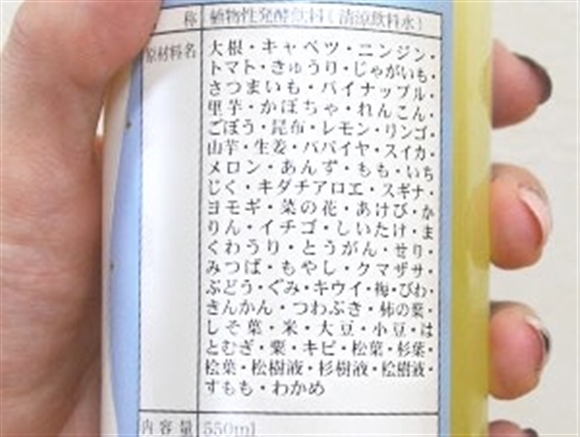 称 植物性発酵飲料(清涼飲料水)
原材料名 大根・キャベツ・ニンジン・
トマト・きゅうり・じゃがいも・
さつまいも・パイナップル・
里芋・かぼちゃ・れんこん・
ごぼう・昆布・レモン・リンゴ・
山芋・生姜・パパイヤ・スイカ・
メロン・あんず・もも・いち
じく・キダチアロエ・スギナ・
ヨモギ・菜の花・あけび・か
りん・イチゴ・しいたけ・ま
くわうり・とうがん・せり・
みつば・もやし・クマザサ・
ぶどう・ぐみ・キウイ・梅・びわ・
きんかん・つわぶき・柿の葉・
しそ葉・米・大豆・小豆・は
とむぎ・粟・キビ・松葉・杉葉・
桧葉・松樹液・杉樹液・桧樹液・
すもも・わかめ
内容量 550ml